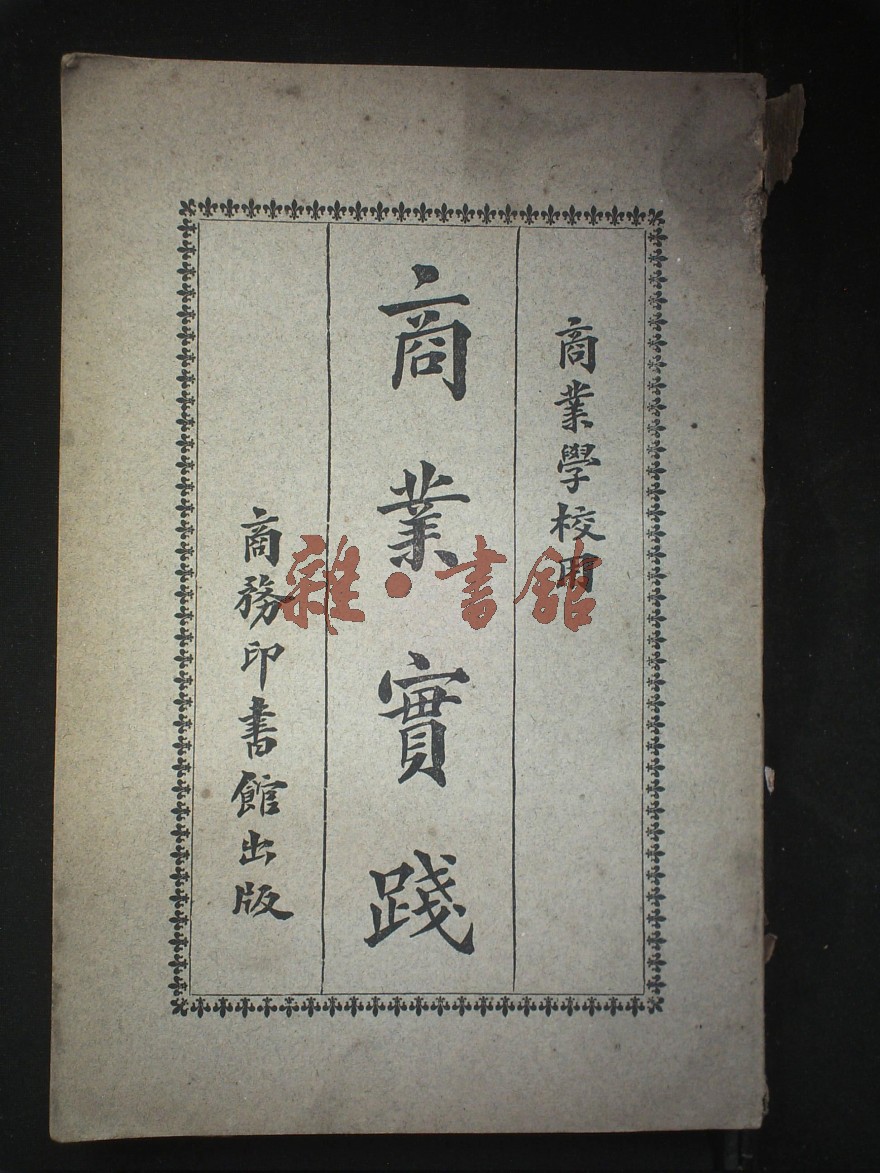 商業學校用
商業實踐
商務印書館出版
雜·書館